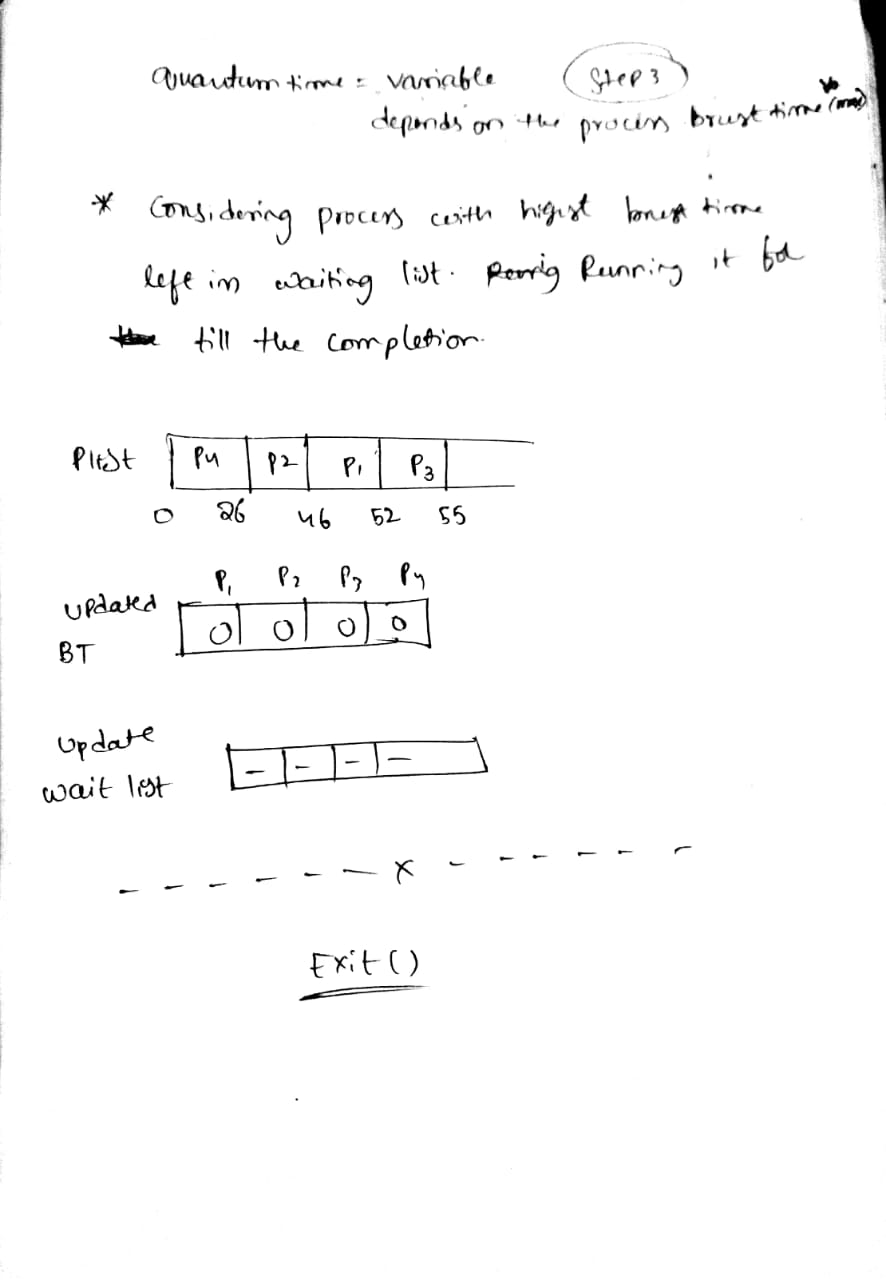 Quantum time = variable
Step 3
depends on the process brust time (max)
* Considering process with higest brust time
left in waiting list. Running it
till the completion.
Plist P4 P2 P1 P3
0 26 46 52 55
P1 P2 P3 P4
Updated
BT 0 0 0 0
Update
wait list - - - -
- - - - - - x - - - - - -
Exit()